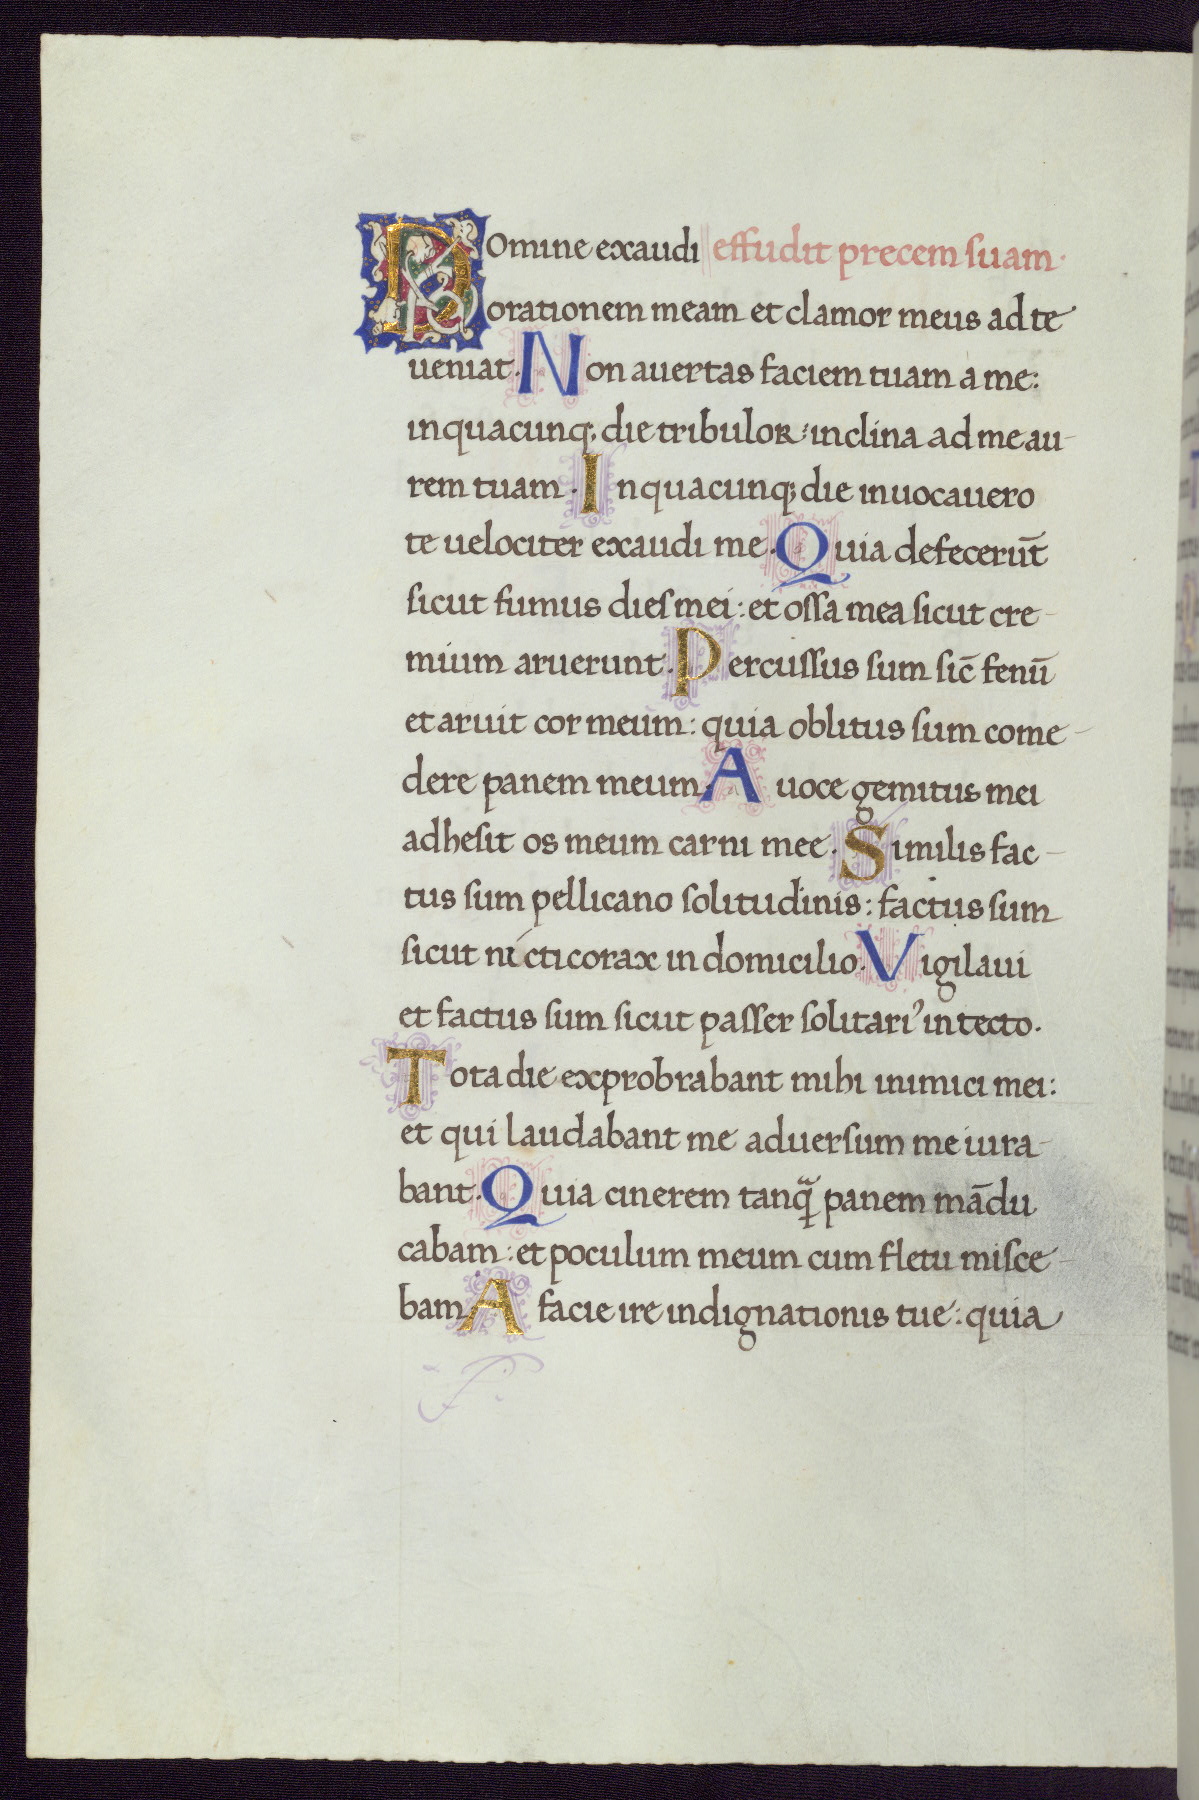 Domine exaudi effudit precem suam.
orationem meam et clamor meus ad te
ueniat. Non auertas faciem tuam a me:
in quacunq; die tribulor: inclina ad me au-
rem tuam. In quacunq; die inuocauero
te uelociter exaudi me. Quia defecerūt
sicut fumus dies mei: et ossa mea sicut cre-
mium aruerunt. Percussus sum sic̄ fenū
et aruit cor meum: quia oblitus sum come-
dere panem meum. A uoce gemitus mei
adhesit os meum carni mee. Similis fac-
tus sum pellicano solitudinis: factus sum
sicut nicticorax in domicilio. Vigilaui
et factus sum sicut passer solitariꝰ in tecto.
Tota die exprobrabant mihi inimici mei:
et qui laudabant me aduersum me iura-
bant. Quia cinerem tanq̃ panem mādu
cabam: et poculum meum cum fletu misce-
bam A facie ire indignationis tue: quia